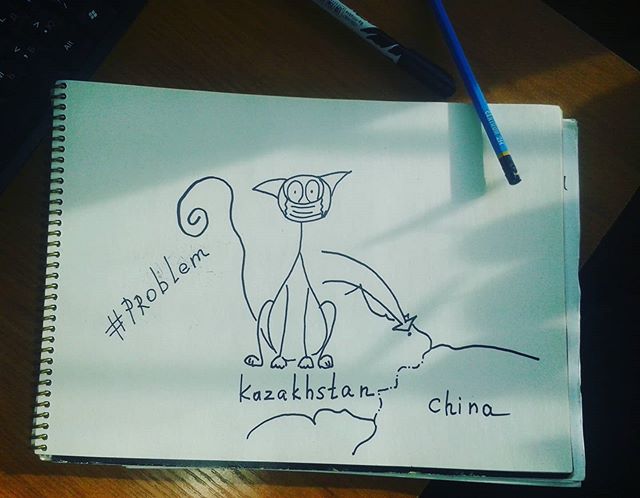 #PRoblem
Kazakhstan
China